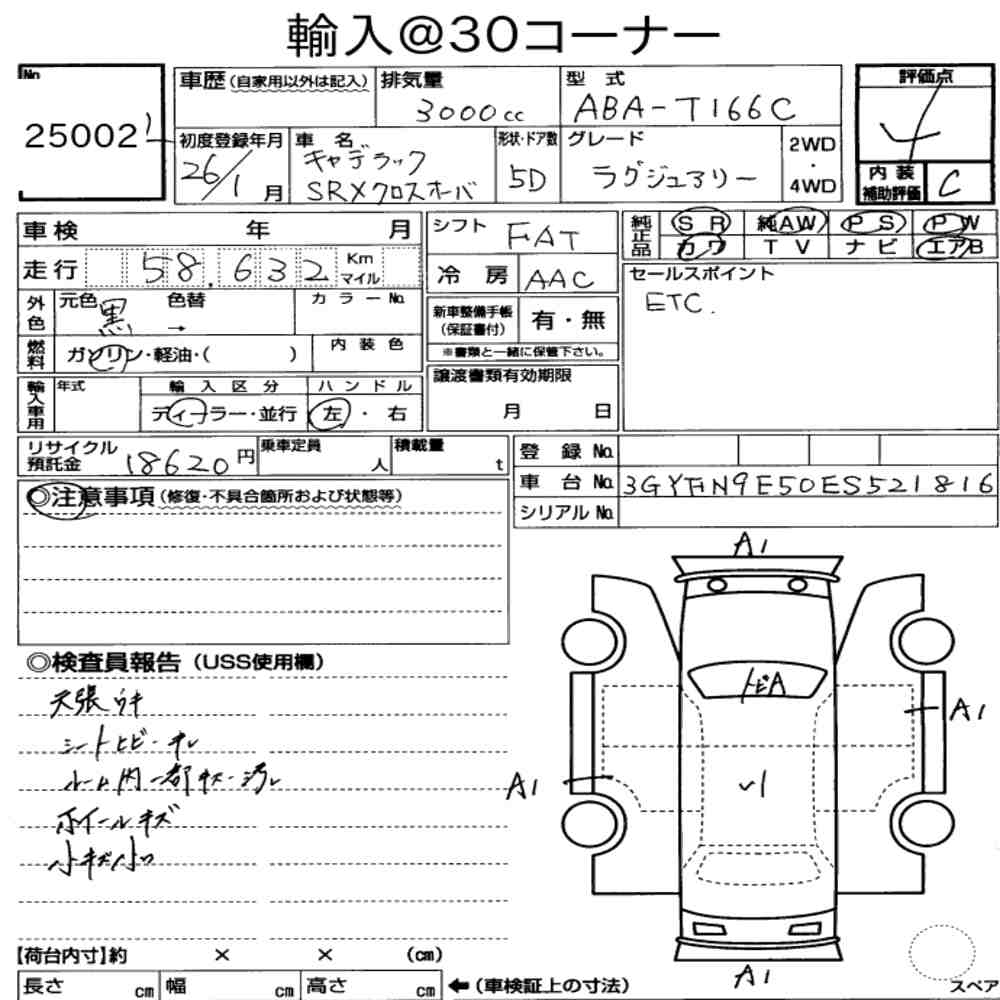 輸入@30コーナー
No 25002
車歴(自家用以外は記入)
排気量 3000cc
型式 ABA-T166C
評価点 4
初度登録年月 26/1月
車名 キャデラック
SRXクロスオーバ
形状・ドア数 5D
グレード ラグジュアリー
2WD
・
4WD
内装
補助評価 C
車検 年 月
走行 58,632 Km
マイル
シフト FAT
冷房 AAC
純正品 SR 純AW PS PW
カワ TV ナビ エアB
外色 元色 黒 色替 →
カラーNo.
燃料 ガソリン・軽油・( )
内装色
新車整備手帳
(保証書付) 有・無
※書類と一緒に保管下さい。
セールスポイント
ETC.
輸入車用 年式
輸入区分 ディーラー・並行
ハンドル 左・右
譲渡書類有効期限
月 日
リサイクル
預託金 18620円
乗車定員 人
積載量 t
登録No.
車台No. 3GYFN9E50ES521816
シリアルNo.
◎注意事項(修復・不具合箇所および状態等)
◎検査員報告(USS使用欄)
天張ウキ
シートヒビ・キレ
ルーム内一部キズ・汚レ
ホイールキズ
小キズ小凹
A1
トビA
A1
A1
A1
【荷台内寸】約 × × (cm)
長さ cm 幅 cm 高さ cm ←(車検証上の寸法)
スペア